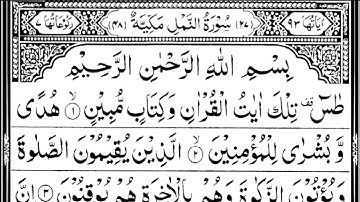 اٰيَاتُهَا ٩٣ (٢٧) سُوْرَةُ النَّمْلِ مَكِّيَّةٌ (٤٨) رُكُوْعَاتُهَا ٧
بِسْمِ اللّٰهِ الرَّحْمٰنِ الرَّحِيْمِ
طٰسٓ ۟ قف تِلْكَ اٰيٰتُ الْقُرْاٰنِ وَكِتَابٍ مُّبِيْنٍ ۙ﴿١﴾ هُدًى
وَّ بُشْرٰى لِلْمُؤْمِنِيْنَ ۙ﴿٢﴾ الَّذِيْنَ يُقِيْمُوْنَ الصَّلٰوةَ
وَ يُؤْتُوْنَ الزَّكٰوةَ وَهُمْ بِالْاٰخِرَةِ هُمْ يُوْقِنُوْنَ ﴿٣﴾ اِنَّ